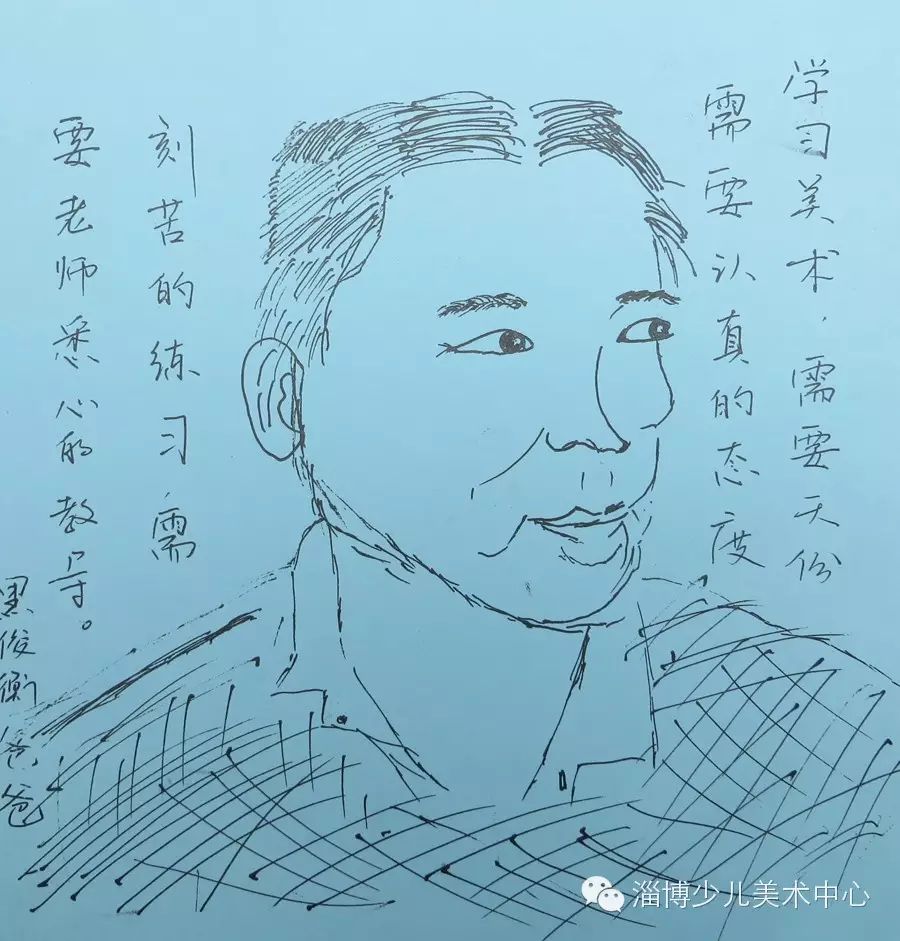 学习美术，需要天份
需要认真的态度
刻苦的练习需
要老师悉心的教导。
黑俊衡爸爸
淄博少儿美术中心